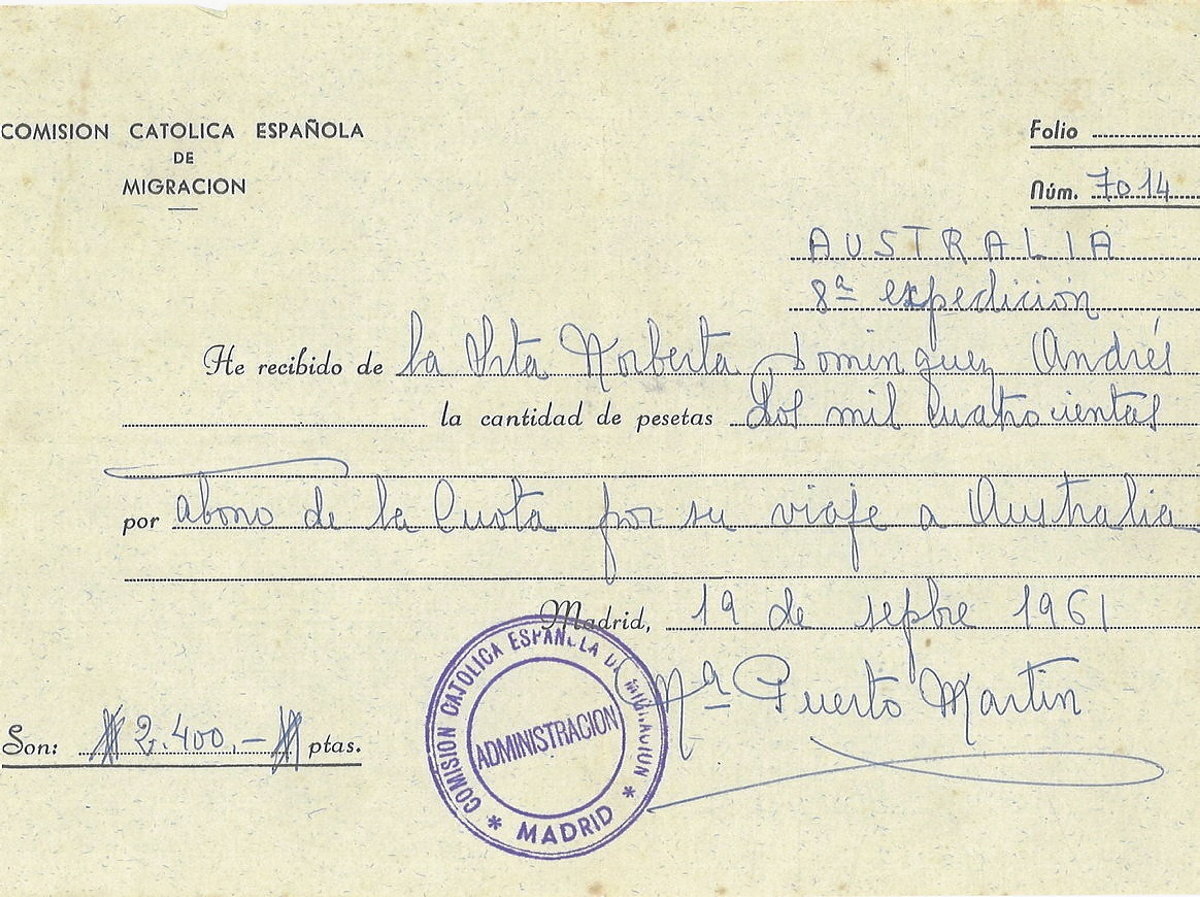 COMISION CATOLICA ESPAÑOLA
DE
MIGRACION
Folio
Núm. 7014
AUSTRALIA
8ª expedición
He recibido de la Srta Norberta Dominguez Andrés
la cantidad de pesetas dos mil cuatrocientas
por abono de la Cuota por su viaje a Australia
Madrid, 19 de sepbre 1961
Mª Puerto Martin
Son: 2.400.- ptas.
COMISION CATOLICA ESPAÑOLA DE MIGRACION
ADMINISTRACION
* MADRID *